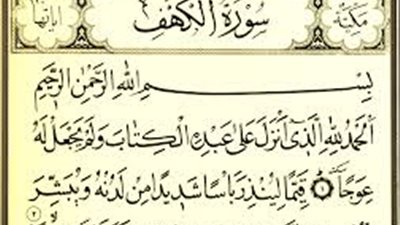 مكية سورة الكهف اياتها
بِسْمِ اللهِ الرَّحْمٰنِ الرَّحِيمِ
اَلْحَمْدُ لِلّٰهِ الَّذٖٓى اَنْزَلَ عَلٰى عَبْدِهِ الْكِتَابَ وَلَمْ يَجْعَلْ لَهُ
عِوَجًاۜ ﴿١﴾ قَيِّمًا لِيُنْذِرَ بَاْسًا شَدٖيدًا مِنْ لَدُنْهُ وَيُبَشِّرَ